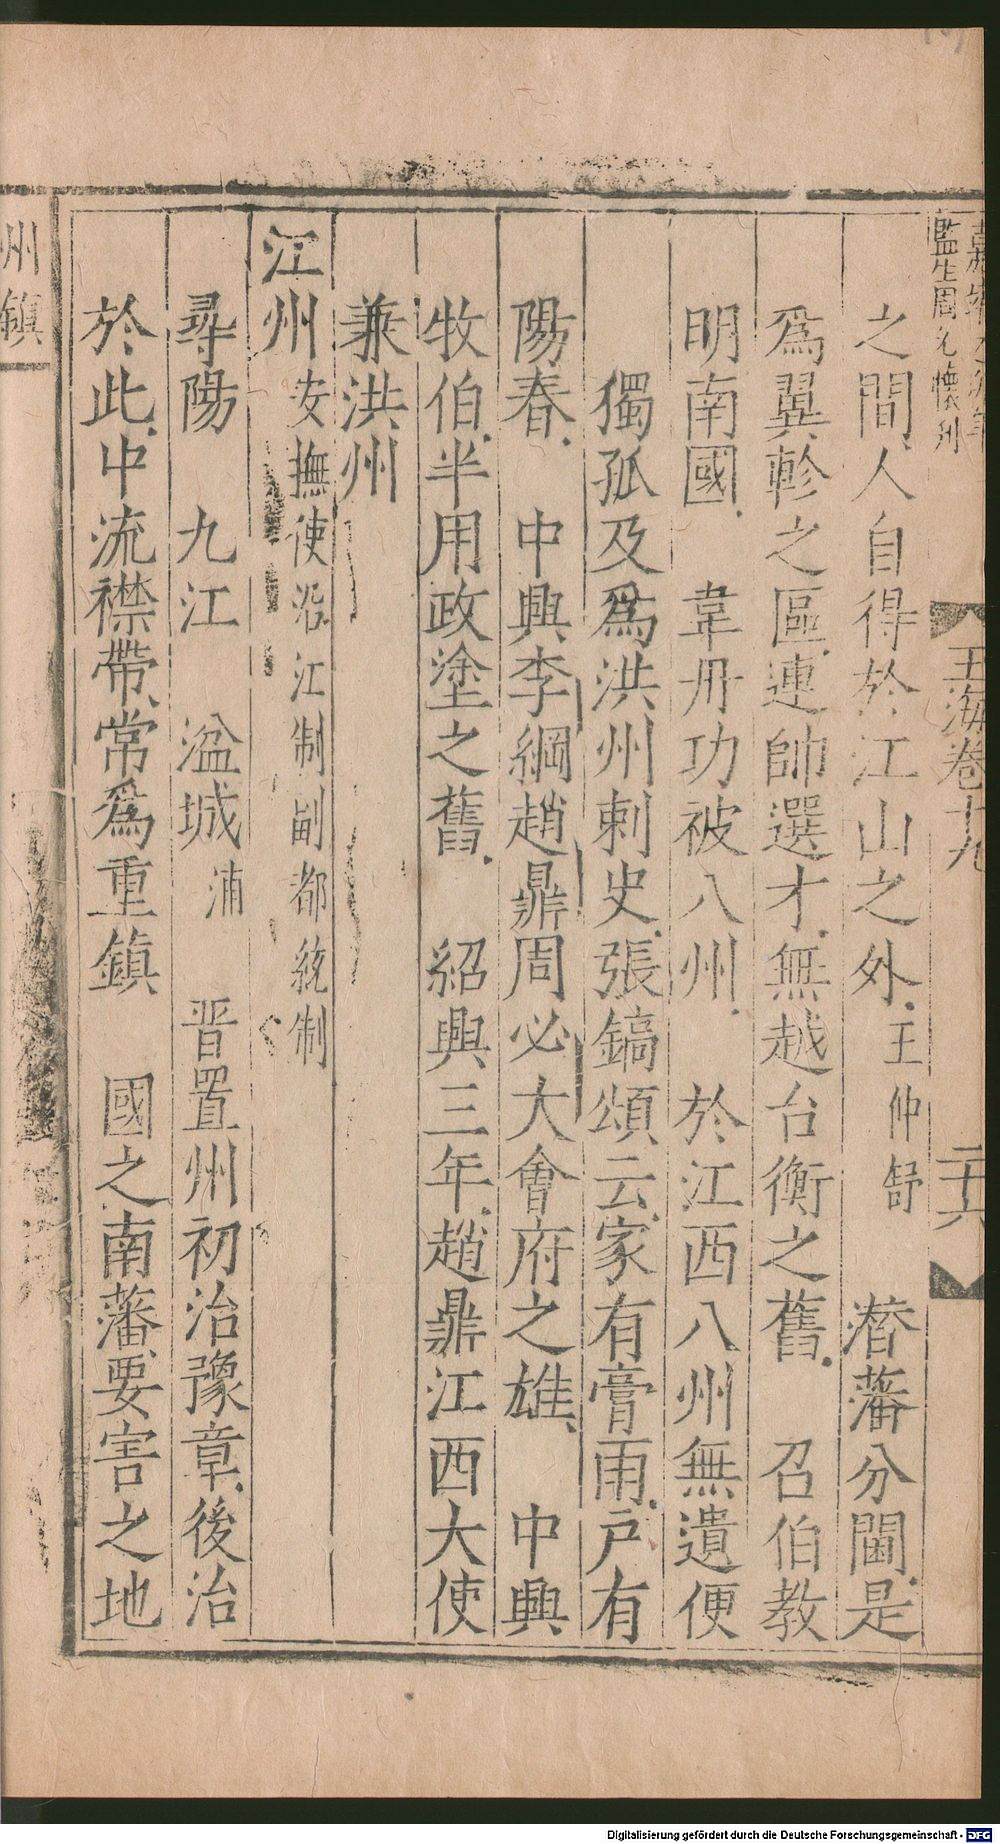 監生周允懷刋
玉海卷十九
二十六
之間人自得於江山之外王仲舒　潛藩分閫是
爲翼軫之區連帥選才無越台衡之舊　召伯教
明南國　韋丹功被八州　於江西八州無遺便
獨孤及爲洪州刺史張鎬頌云家有膏雨戸有
陽春　中興李綱趙鼎周必大會府之雄　中興
牧伯半用政塗之舊　紹興三年趙鼎江西大使
兼洪州
江州　安撫使沿江制副都統制
尋陽　九江　湓城浦　晋置州初治豫章後治
於此中流襟帶常爲重鎮　國之南藩要害之地
州鎮
Digitalisierung gefördert durch die Deutsche Forschungsgemeinschaft - DFG